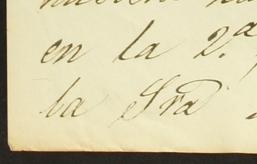 en la 2.ª
la Sra